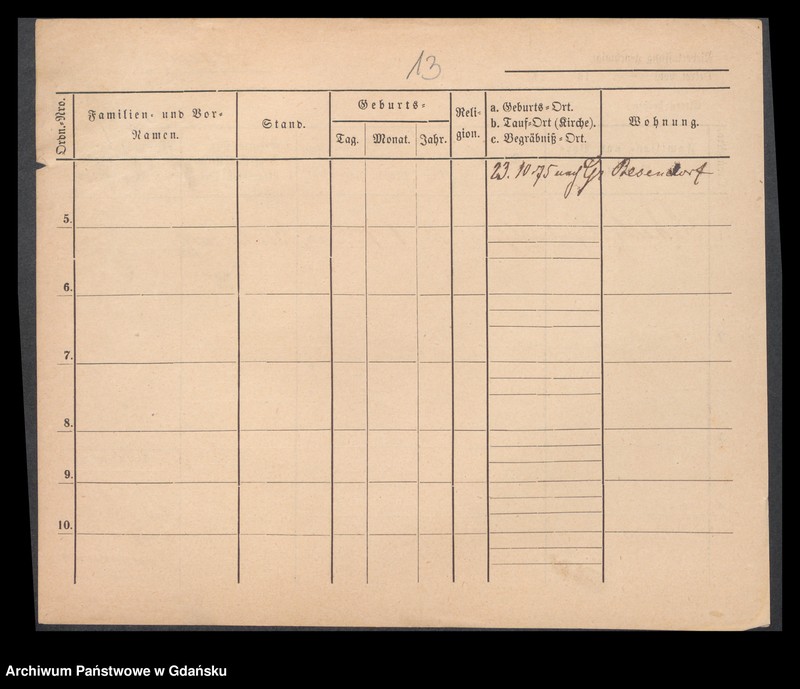 13
Ordn.-Nro.
Familien- und Vor-
Namen.
Stand.
Geburts-
Tag.
Monat.
Jahr.
Reli-
gion.
a. Geburts-Ort.
b. Tauf-Ort (Kirche).
c. Begräbniß-Ort.
Wohnung.
23. 10. 75 nach Gr
5.
6.
7.
8.
9.
10.
Archiwum Państwowe w Gdańsku